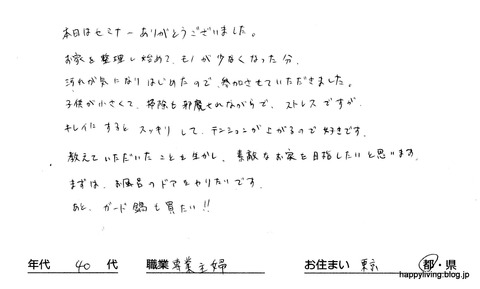 本日はセミナーありがとうございました。
お家を整理し始めて、モノが少なくなった分、
汚れが気になりはじめたので、参加させていただきました。
子供が小さくて、掃除も邪魔されながらで、ストレスですが、
キレイにすると スッキリ して、テンションが上がるので好きです。
教えていただいたことも生かし、素敵なお家を目指したいと思います。
まずは、お風呂のドアをやりたいです。
あと、ガード鍋も買たい!!
年代 40 代 職業 専業主婦 お住まい 東京 都・県
happyliving.blog.jp